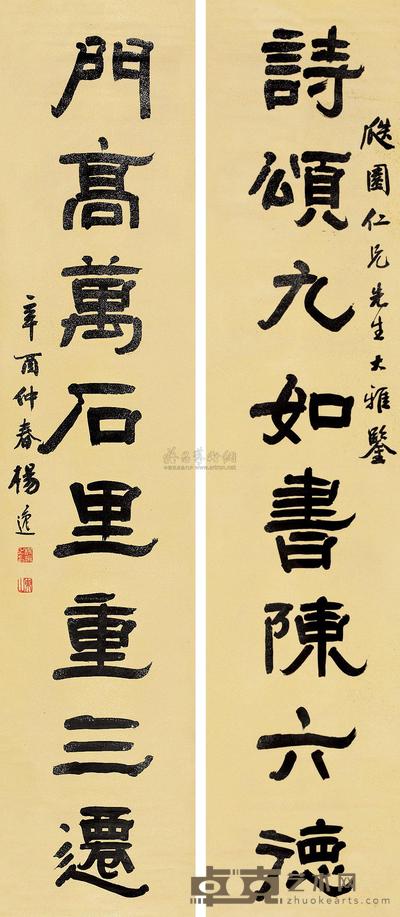 瓞園仁兄先生大雅鑒
詩頌九如書陳六德
門高萬石里重三遷
辛酉仲春楊逸
卓克艺术网
zhuokearts.com